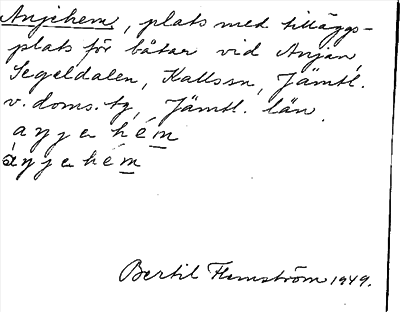 Anjehem, plats med tilläggs-
plats för båtar vid Anjan,
Segeldalen, Kallsn, Jämtl.
v. doms. tg, Jämtl. län.
a y y e h é m
á y y e h é m
Bertil Flemström 1949.